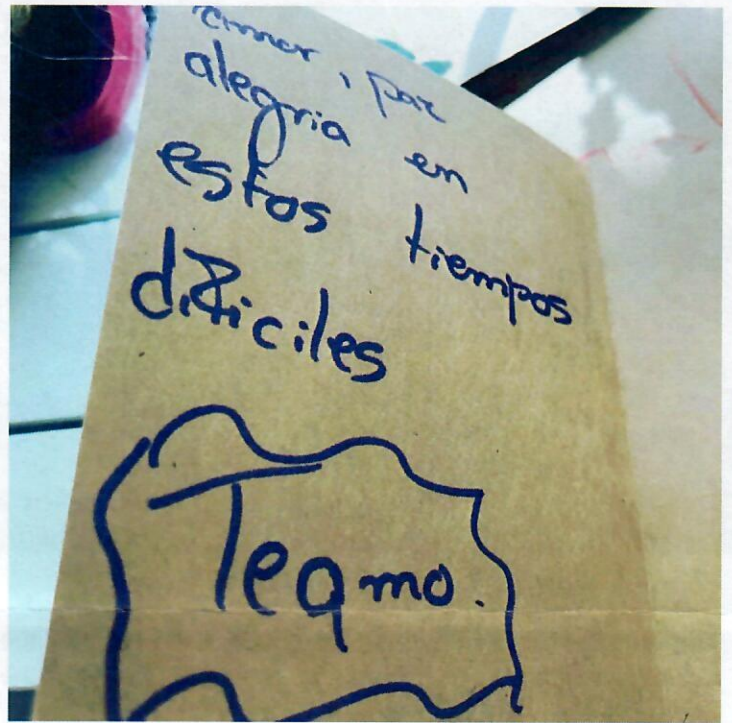 amor, paz
alegria en
estos tiempos
dificiles
Te amo.